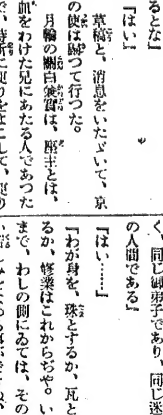 るとな』
『はい』
草稿と、消息をいたゞいて、京
の使は歸つて行つた。
月輪の關白兼實は、座主とは、
血をわけた兄にあたる人であつた
く、同じ御弟子であり、同じ派
の人間である』
『はい……』
『わが身を、珠とするか、瓦と
るか、修業はこれからぢや。い
まで、わしの側にゐては、その